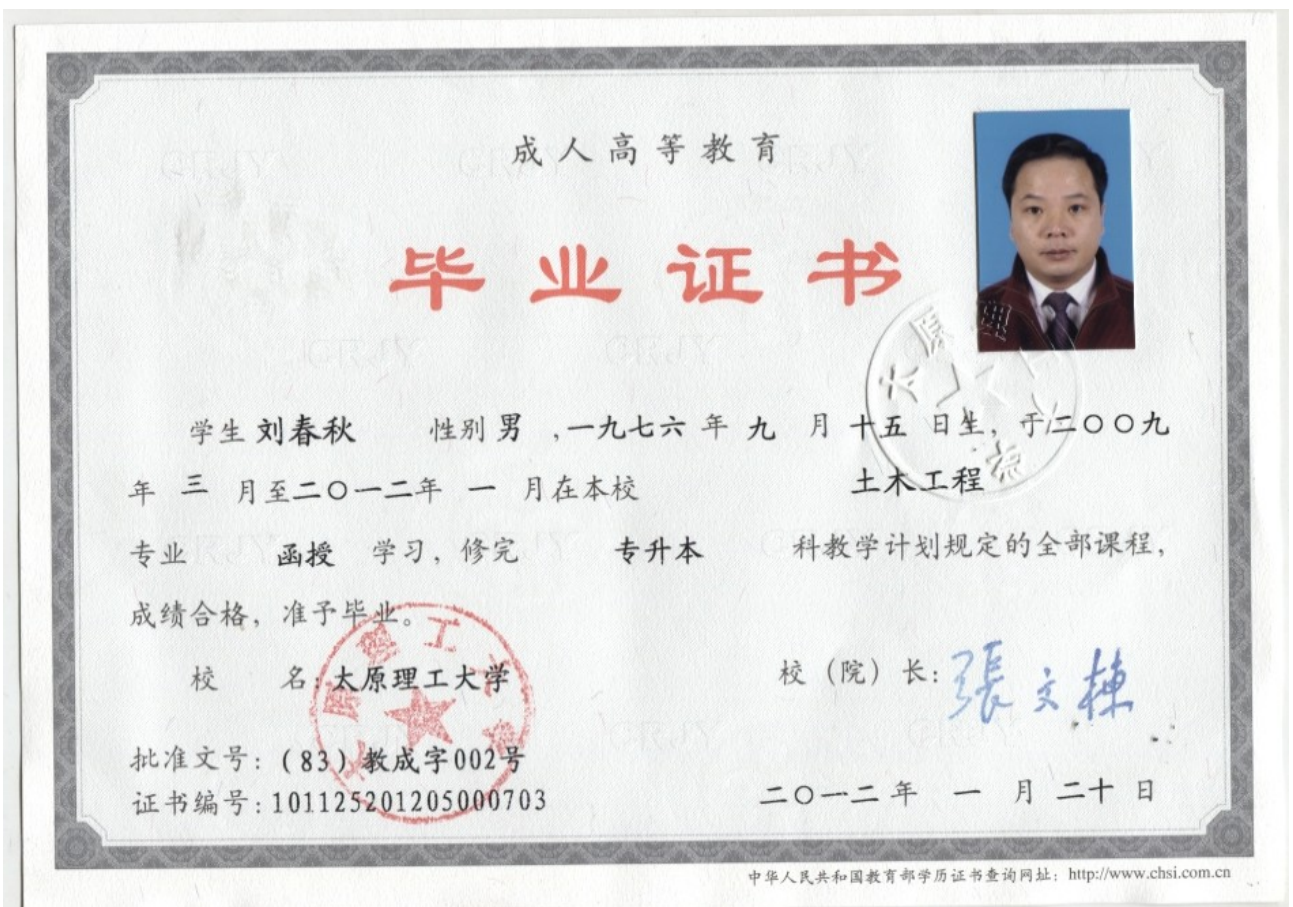 成人高等教育
毕业证书
学生 刘春秋 性别 男 ,一九七六 年 九 月 十五 日生, 于二〇〇九
年 三 月至二〇一二年 一 月在本校 土木工程
专业 函授 学习, 修完 专升本 科教学计划规定的全部课程,
成绩合格, 准予毕业。
校 名: 太原理工大学 校（院）长: 張文棟
批准文号: (83) 教成字002号
证书编号: 101125201205000703 二〇一二 年 一 月 二十 日
太原理工大学
中华人民共和国教育部学历证书查询网址: http://www.chsi.com.cn